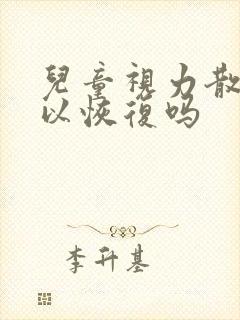 兒童視力散
以恢復吗
李升基